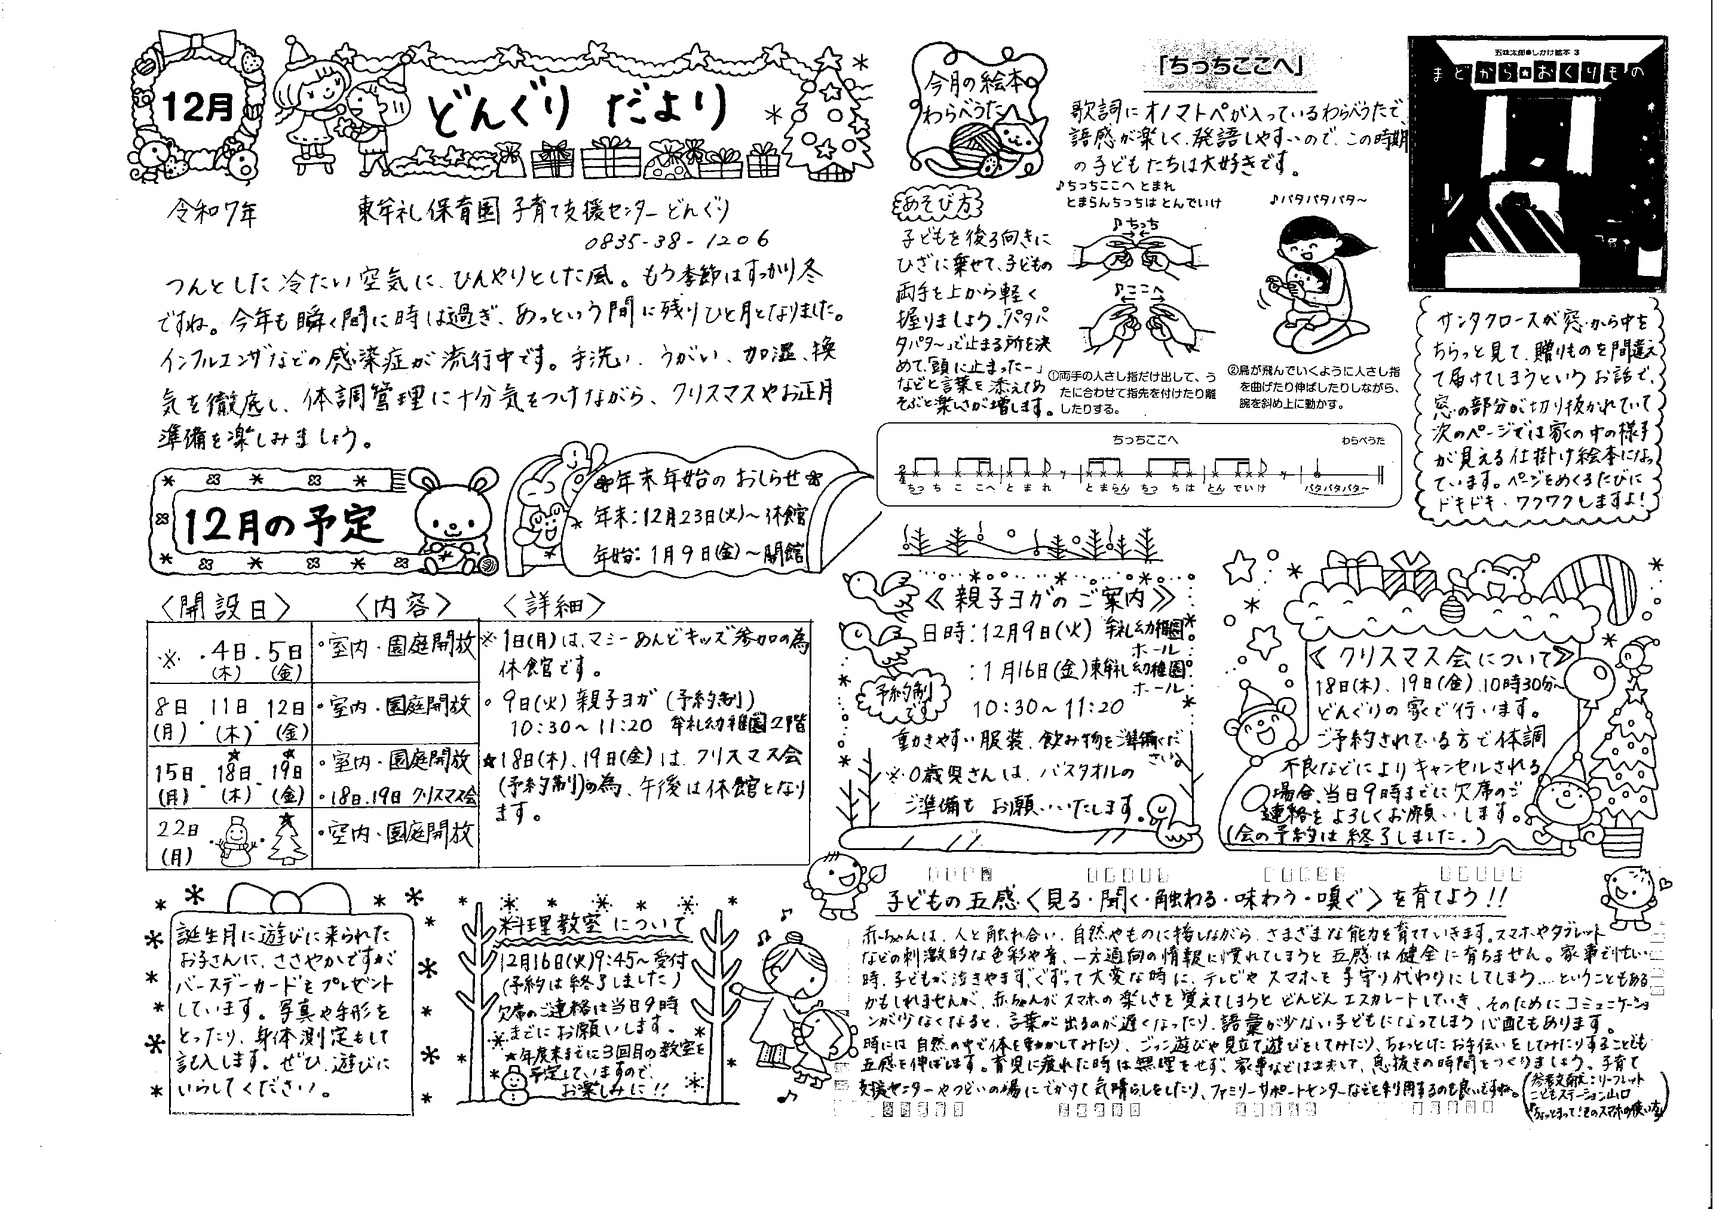 12月
どんぐり だより
令和7年 東牟礼保育園 子育て支援センターどんぐり
0835-38-1206
つんとした冷たい空気に、ひんやりとした風。もう季節はすっかり冬
ですね。今年も瞬く間に時は過ぎ、あっという間に残りひと月となりました。
インフルエンザなどの感染症が流行中です。手洗い、うがい、加湿、換
気を徹底し、体調管理に十分気をつけながら、クリスマスやお正月
準備を楽しみましょう。
12月の予定
年末年始のおしらせ
年末:12月23日(火)～休館
年始:1月9日(金)～開館
〈開設日〉 〈内容〉 〈詳細〉
※ ・4日・5日
(木) (金)
・室内・園庭開放
8日・11日・12日
(月) (木) (金)
・室内・園庭開放
15日・18日・19日
(月) (木) (金)
・室内・園庭開放
・18日,19日 クリスマス会
22日
(月)
・室内・園庭開放
※1日(月)は、マミーあんどキッズ参加の為
休館です。
○9日(火) 親子ヨガ(予約制)
10:30～11:20 牟礼幼稚園2階
★18日(木)、19日(金)は、クリスマス会
(予約制)の為、午後は休館となり
ます。
誕生月に遊びに来られた
お子さんに、ささやかですが
バースデーカードをプレゼント
しています。写真や手形を
とったり、身体測定もして
記入します。ぜひ、遊びに
いらしてください。
料理教室について
12月16日(火)9:45～受付
(予約は終了しました)
欠席のご連絡は当日9時
までにお願いします。
★年度末までに3回目の教室を
予定していますので、
お楽しみに!!
今月の絵本
わらべうた
「ちっちここへ」
歌詞にオノマトペが入っているわらべうたで、
語感が楽しく、発語しやすいので、この時期
の子どもたちは大好きです。
あそび方
子どもを後ろ向きに
ひざに乗せて、子どもの
両手を上から軽く
握りましょう。「パタパ
タパタ～」で止まる所を決
めて、「頭に止まったー」
などと言葉を添えてあ
そぶと楽しさが増します。
♪ちっちここへ とまれ
とまらんちっちは とんでいけ
♪ちっち
♪ここへ
①両手の人さし指だけ出して、う
たに合わせて指先を付けたり離
したりする。
♪パタパタパタ～
②鳥が飛んでいくように人さし指
を曲げたり伸ばしたりしながら、
腕を斜め上に動かす。
ちっちここへ わらべうた
ちっ ち こ こへ と ま れ とまらん ちっ ち は とん でいけ パタパタパタ～
五味太郎●しかけ絵本 3
まどから★おくりもの
サンタクロースが窓から中を
ちらっと見て、贈りものを間違え
て届けてしまうというお話で、
窓の部分が切り抜かれていて
次のページでは家の中の様子
が見える仕掛け絵本になっ
ています。ページをめくるたびに
ドキドキ・ワクワクしますよ!
《親子ヨガのご案内》
日時:12月9日(火) 牟礼幼稚園
ホール
:1月16日(金)東牟礼幼稚園
ホール
10:30～11:20
予約制
です
動きやすい服装、飲み物をご準備くだ
さい。
※0歳児さんは、バスタオルの
ご準備もお願いいたします。
《クリスマス会について》
18日(木)、19日(金)、10時30分～
どんぐりの家で行います。
ご予約されている方で体調
不良などによりキャンセルされる
場合、当日9時までに欠席のご
連絡をよろしくお願いします。
(会の予約は終了しました。)
子どもの五感〈見る・聞く・触わる・味わう・嗅ぐ〉を育てよう!!
赤ちゃんは、人と触れ合い、自然やものに接しながら、さまざまな能力を育てていきます。スマホやタブレット
などの刺激的な色彩や音、一方通向の情報に慣れてしまうと五感は健全に育ちません。家事で忙しい
時、子どもが泣きやまず、ぐずって大変な時に、テレビやスマホを子守り代わりにしてしまう….ということもある
かもしれませんが、赤ちゃんがスマホの楽しさを覚えてしまうとどんどんエスカレートしていき、そのためにコミュニケーショ
ンが少なくなると、言葉が出るのが遅くなったり、語彙が少ない子どもになってしまう心配もあります。
時には自然の中で体を動かしてみたり、ごっこ遊びや見立て遊びをしてみたり、ちょっとしたお手伝いをしてみたりすることも
五感を伸ばします。育児に疲れた時は無理をせず、家事などはお休みして、息抜きの時間をつくりましょう。子育て
支援センターやつどいの場にでかけて気晴らしをしたり、ファミリーサポートセンターなどを利用するのも良いですね。
(参考文献:リーフレット
こどもステーション山口
「ちょっとまって!そのスマホの使い方」)